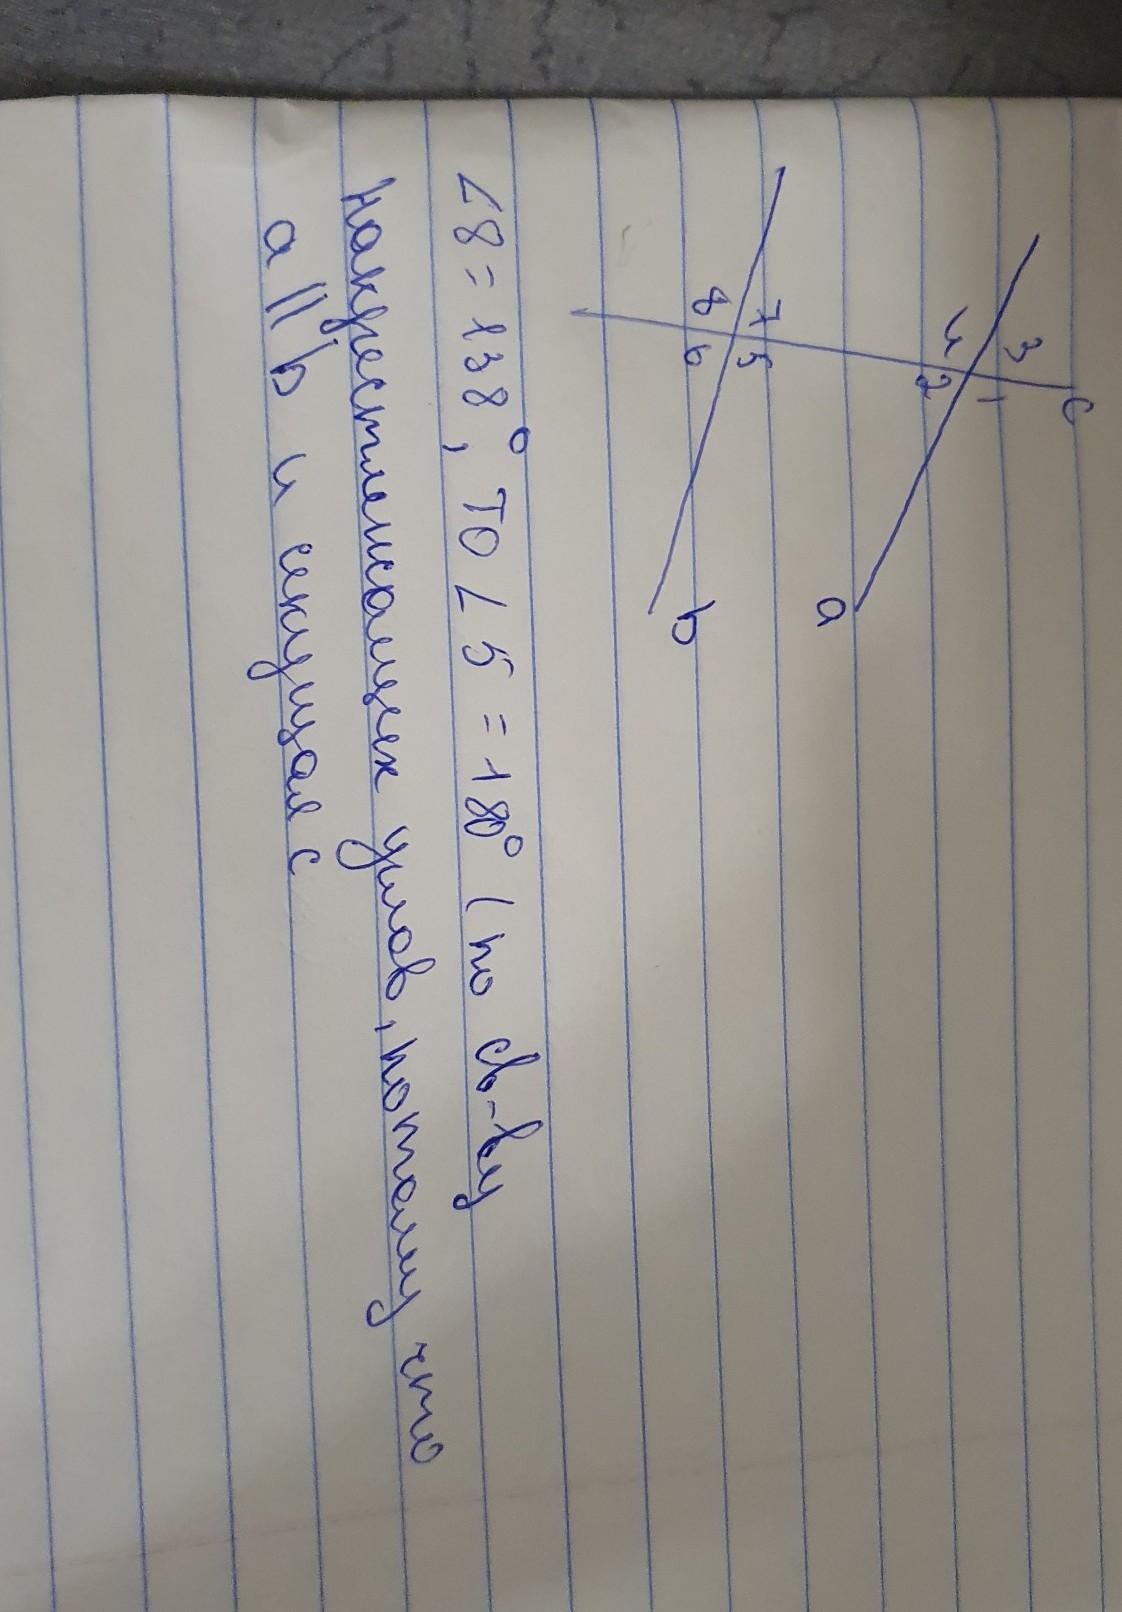 c
3 1
4 2
a
7 5
8 6
b
∠8 = 138°, то ∠5 = 180° (по св-ву
накрестлежащих углов, потому что
a || b и секущая c